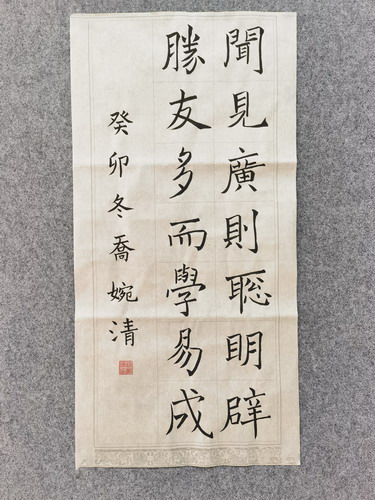 聞見廣則聡明辟
勝友多而學易成
癸卯冬喬婉清